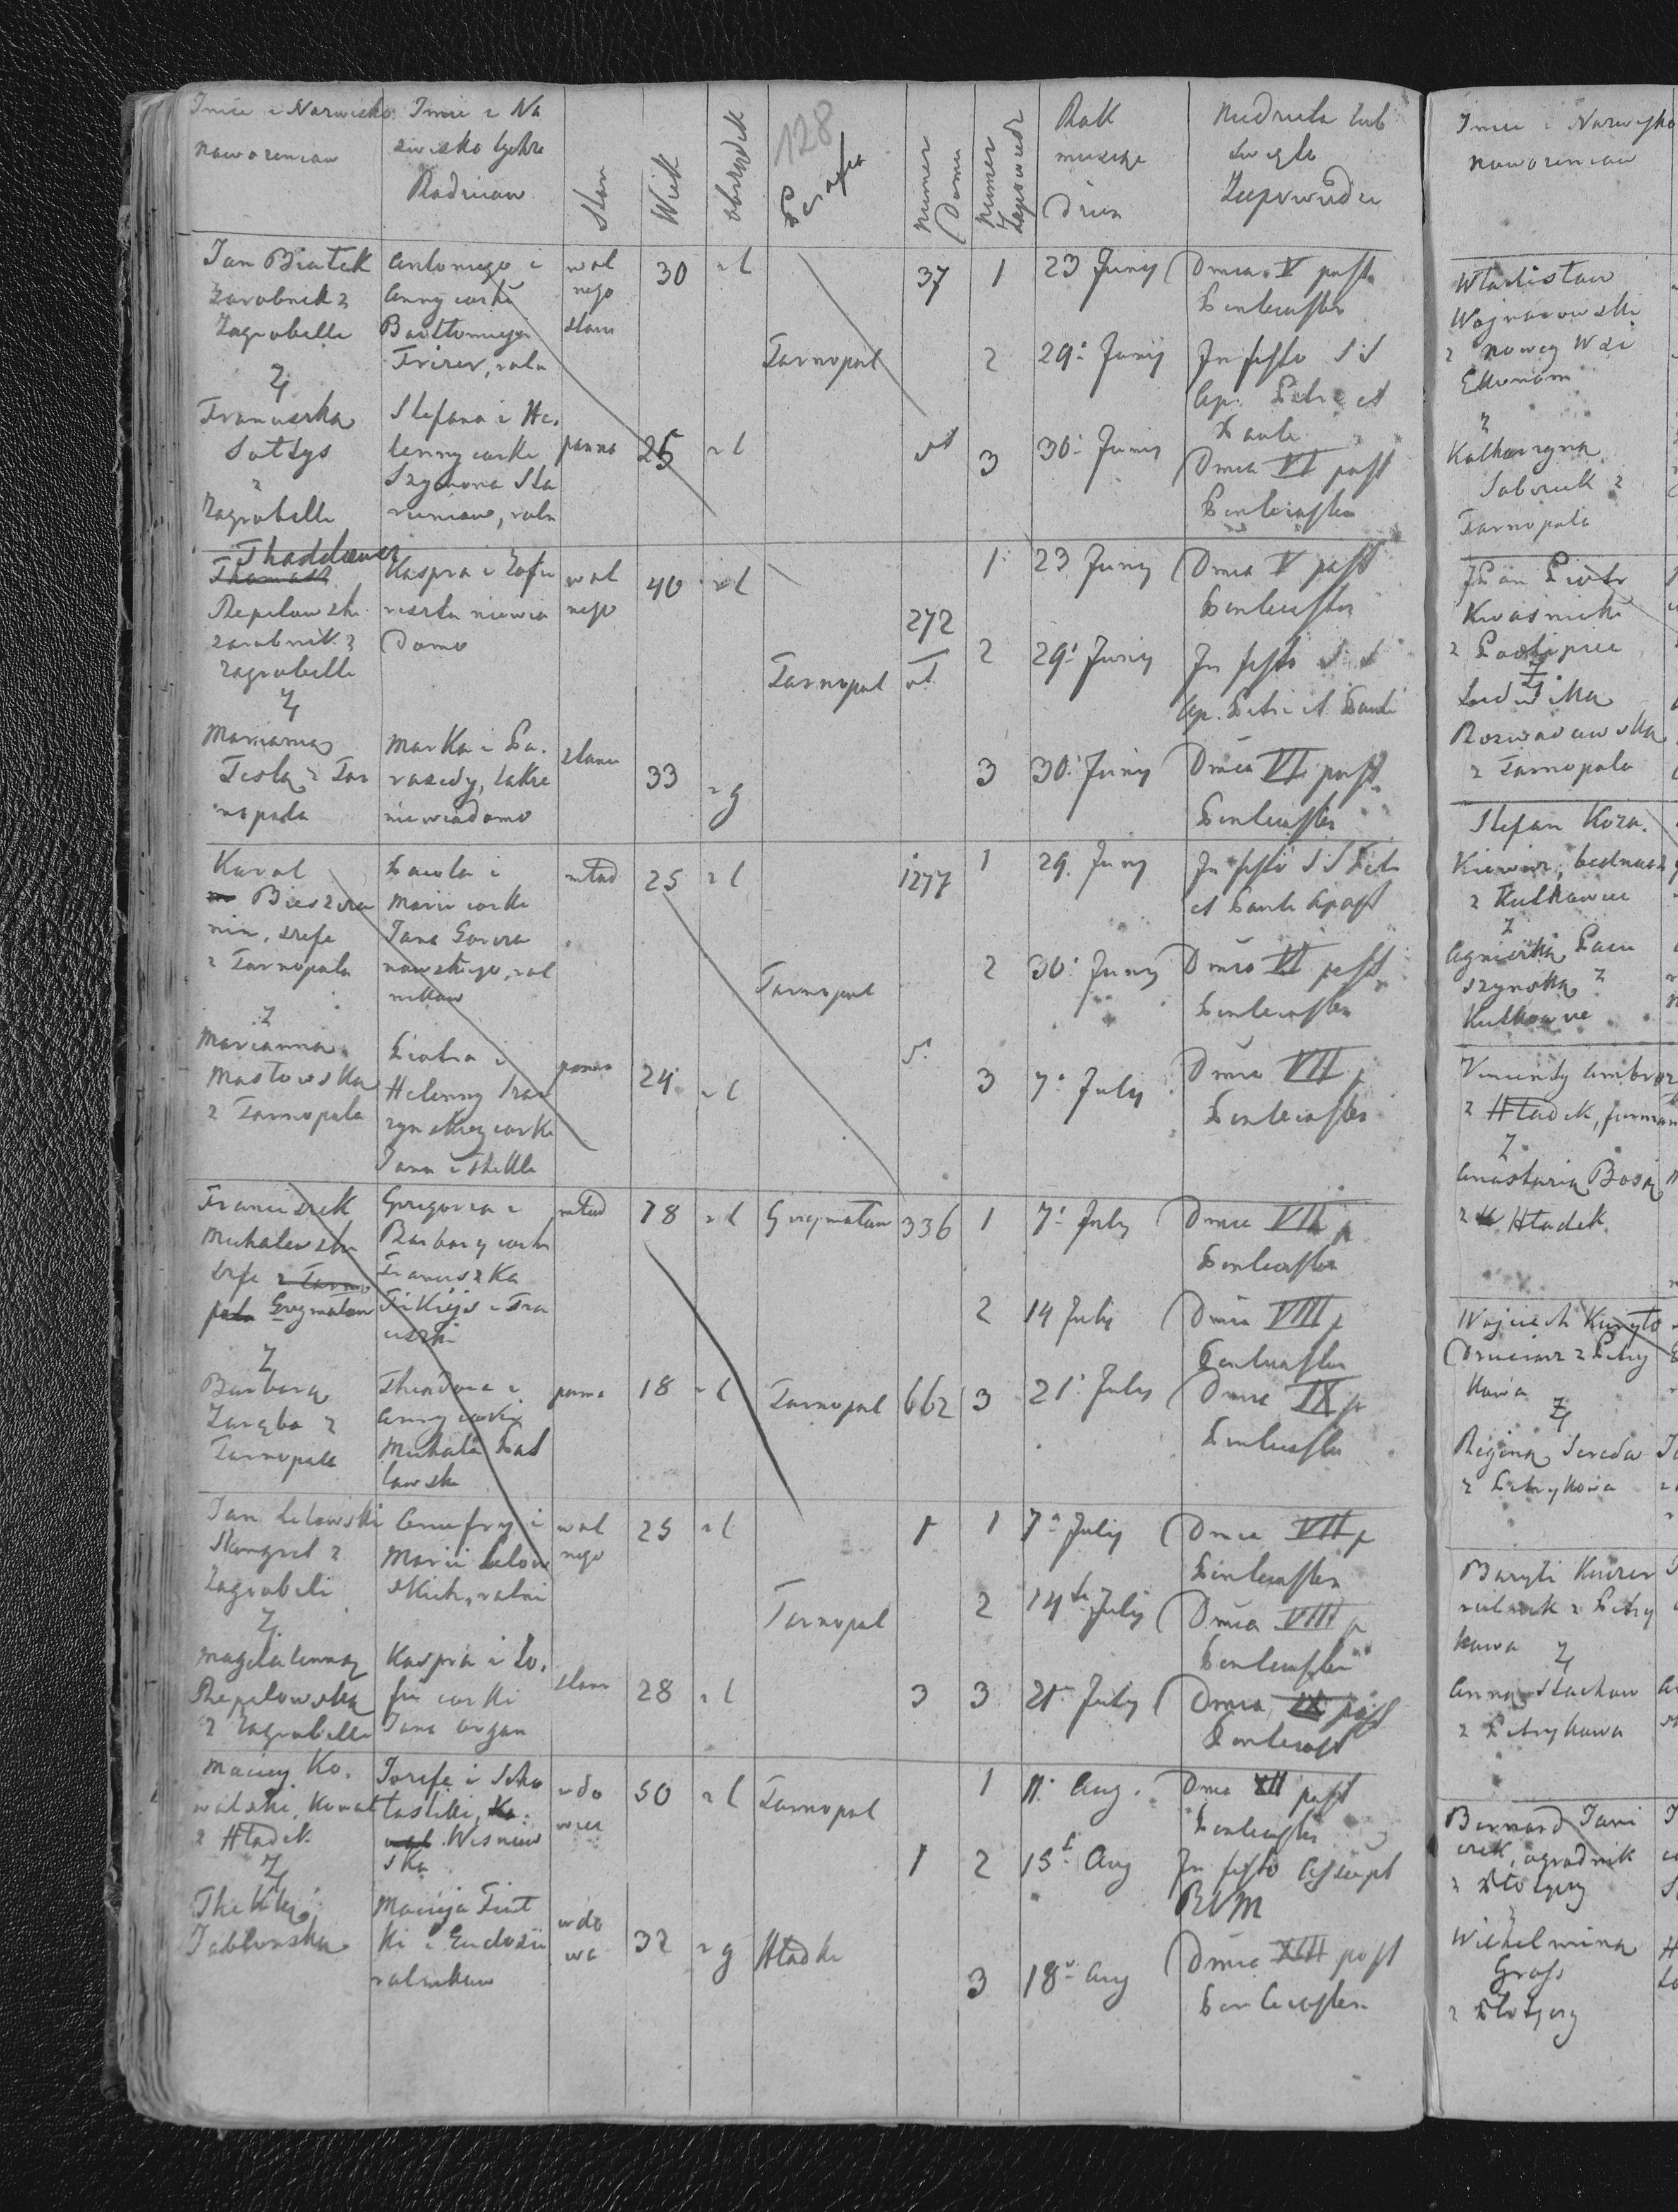 128
Imie i Nazwisko
nowozencow
Imie i Na
zwisko tychze
Rodzicow
Stan
Wiek
obrządek
Parafia
Numer
Domu
Numer
Zapowiedz
Rok
miesiąc
Dzien
Niedziela lub
Swięto
Zapowiedzi
Jan Białek
zarobnik z
Zagrobelli
Z
Franciszka
Sołtys
z
Zagrobelli
Antoniego i
Anny corki
Bartłomieja
Stefana i He.
lenny corki
Szymona Sta
wol
nego
stanu
panna
30
25
r l
r l
Tarnopol
37
1
2
3
23 Junij
29. Junij
30. Junij
Dnica V post
Pentecosten
In festo S S
Ap. Petri et
Pauli
Dnica VI post
Pentecosten
Thaddaeus
Thomasz
Repelowski
zarobnik z
Zagrobelli
Z
Marianna
Tesla z Tar
nopola
Kaspra i Zofii
reszta niewia
domo
Marka i Pa.
raxedy, takze
niewiadomo
wol
nego
stanu
40
33
r l
r g
Tarnopol
272
1
2
3
23 Junij
29. Junij
30. Junij
Dnica V post
Pentecosten
In festo S. S
Ap. Petri et Pauli
Dnica VI post
Pentecosten
Karol
Bieszcza
nin, szefc
z Tarnopola
Z
Marianna
Masłowska
z Tarnopola
Pawla i
Marii corki
Jana
nowskiego, rol
nikow
Piotra i
Helenny
corki
Jana i Thekli
młod
panna
25
24
r l
r l
Tarnopol
1277
1
2
3
29. Junij
30. Junij
7. July
In festo S S Petri
et Pauli Apost
Dnica VI post
Pentecosten
Dnica VII p
Pentecosten
Franciszek
Michalewski
szefc z Tarno
pola Grzymałow
Z
Barbara
Zaręba z
Tarnopola
Grzegorza i
Barbary corki
Franciszka
Theodora i
Anny corki
Michała
młod
panna
28
18
r l
r l
Grzymałow
Tarnopol
336
662
1
2
3
7. July
14 July
21. July
Dnica VII p
Pentecosten
Dnica VIII p
Pentecosten
Dnica IX p
Pentecosten
Jan Lelowski
z
Zagrobeli
Z
Magdalenna
Repelowska
z Zagrobelli
Onufry i
Marii Lelow
skich, rolni
Kaspra i Zo.
fii corki
Jana organ
wol
nego
stanu
25
28
r l
r l
Tarnopol
1
3
1
2
3
7. July
14. July
21. July
Dnica VII p
Pentecosten
Dnica VIII p
Pentecosten
Dnica IX post
Pentecost
Maciey Ko.
walski, kowal
z Hładek
Z
Thekla
Jabłonska
Jozefa i Scho
lastiki, Ko.
wal Wisniew
ska
Macieja
ki i Eudosii
rolnikow
wdo
wiec
wdo
wa
50
32
r l
r g
Tarnopol
Hładki
1
1
2
3
11. Aug.
15. Aug
18. Aug
Dnica XII post
Pentecosten
In festo Assumpt
BVM
Dnica XIII post
Pentecosten
Imie i Nazwisko
nowozencow
Władisław
Wojnarowski
z Nowey Wsi
Ekonom
z
Katharzyna
z
Tarnopola
Jan Piotr
Kwasnicki
z Podlipiec
Z
Ludwika
z Tarnopola
Stefan Koza.
kiewicz, bednarz
z Kutkowiec
Z
Agnieszka Pacu
szynska z
Kutkowiec
Vincenty Ambroz
z Hładek, furman
Z
Anastazia
z Hładek
Wojciech Kuryło
z Petry
kowa
Z
Regina Sereda
z Petrykowa
z Petry
kowa
Z
Anna Stachow
z Petrykowa
Bernard Jani
czek, ogrodnik
z
Wilhelmina
Gross
z